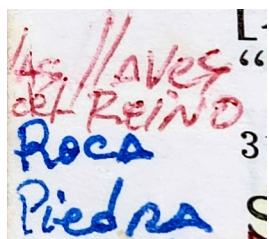 Las llaves
del REINO
Roca
Piedra
3